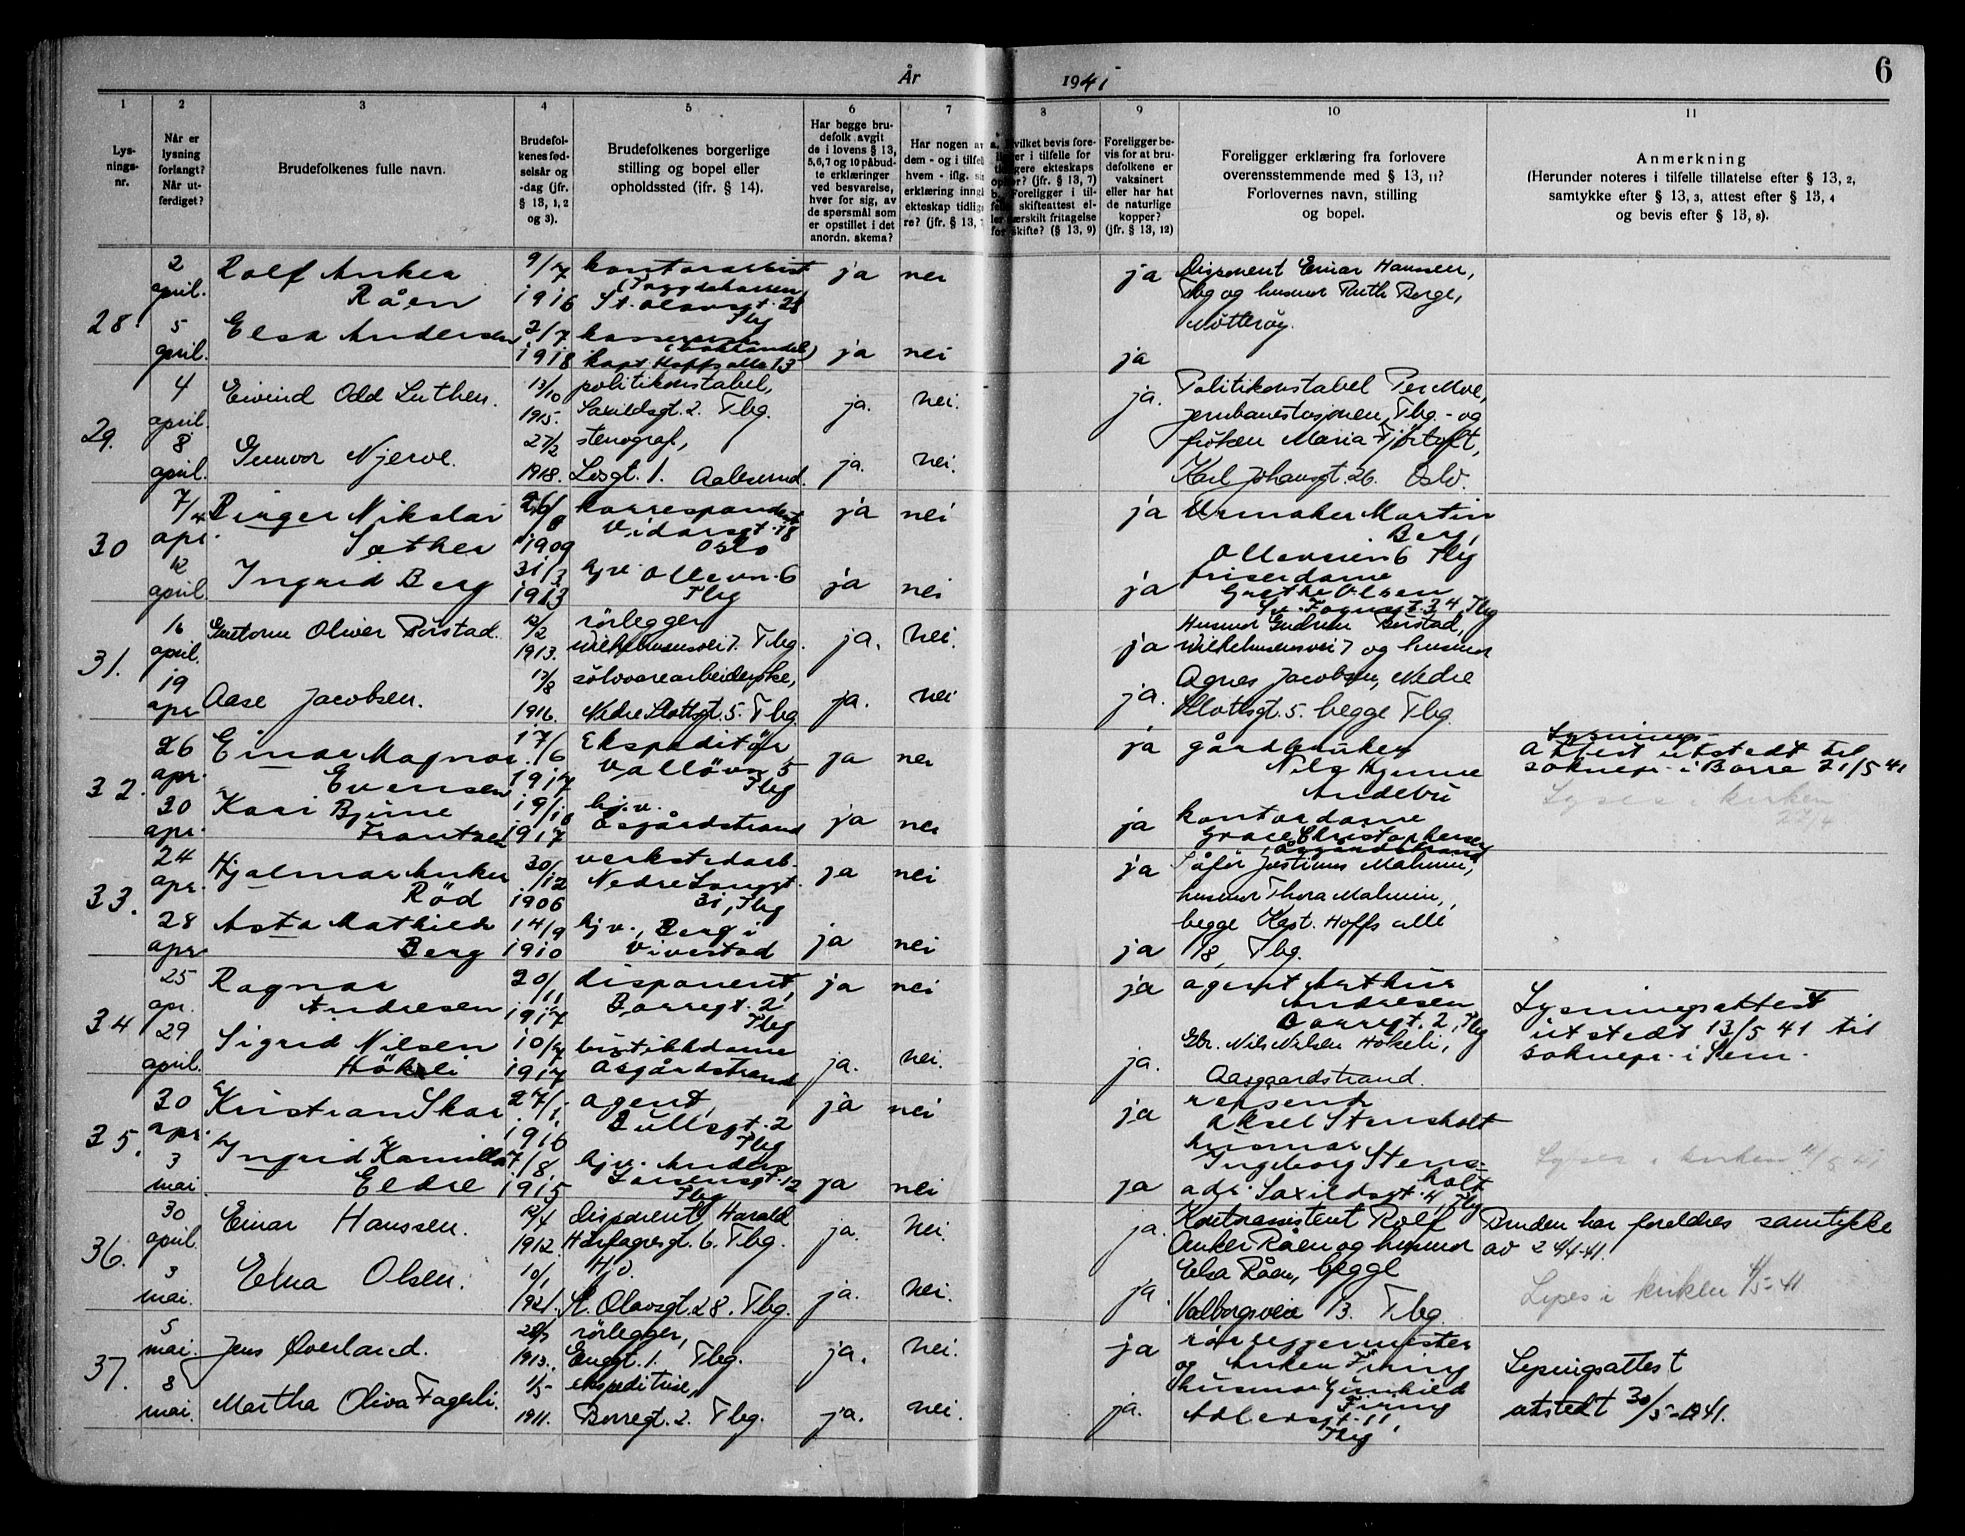 År 1941 6
1 2 3 4 5 6 7 8 9 10 11
Lys-
nings-
nr.
Når er
lysning
forlangt?
Når ut-
ferdiget?
Brudefolkenes fulle navn.
Brudefol-
kenes fød-
selsår og
-dag (jfr.
§ 13, 1, 2
og 3).
Brudefolkenes borgerlige
stilling og bopel eller
opholdssted (jfr. § 14).
Har begge bru-
defolk avgit
de i lovens § 13,
5,6,7 og 10 påbud-
te erklæringer
ved besvarelse,
hver for sig, av
de spørsmål som
er opstillet i det
anordn. skema?
Har nogen av
dem - og i tilfel
hvem - iflg. si
erklæring inng
ekteskap tidlig
re? (jfr. § 13,
a. Hvilket bevis fore-
ligger i tilfelle for
tidligere ekteskaps
ophør? (jfr. § 13, 7)
b. Foreligger i til-
felle skifteattest el-
ler særskilt fritagelse
for skifte? (§ 13, 9)
Foreligger be-
vis for at bru-
defolkene er
vaksinert
eller har hat
de naturlige
kopper?
(jfr. § 13, 12)
Foreligger erklæring fra forlovere
overensstemmende med § 13, 11?
Forlovernes navn, stilling
og bopel.
Anmerkning
(Herunder noteres i tilfelle tillatelse efter § 13, 2,
samtykke efter § 13, 3, attest efter § 13, 4
og bevis efter § 13, 8).
28.
2 april.
5 april.
Rolf Anker
Råen
9/7 1916
St. Olavsgt. 28
Tbg
ja nei ja
Elsa Andersen
2/7 1918
kapt Hoffs alle 13
ja nei ja
Disponent Einar Hanssen,
Tbg og husmor Ruth Berge,
Nøtterøy.
29.
4 april.
8 april.
Eivind Odd Luthen.
13/10 1915.
politikonstabel,
Saxildsgt. 2. Tbg.
ja. nei. ja.
Gunvor Njerve.
27/2 1918.
stenograf,
1. Aalesund.
ja. nei.
Politikonstabel Per Moe,
jernbanestasjonen, Tbg - og
frøken Maria Fjørtoft,
Karl Johansgt. 26. Oslo.
30
7/4 apr.
12 april.
Birger Nikolai
Sæther
1909
korrespondent
Vidarsgt. 18
Oslo
ja nei ja
Ingrid Berg
31/3 1913
hjv. Ollevn. 6
Tbg
ja nei ja
Urmaker Martin
Berg,
Olleveien 6 Tbg
friserdame
Grethe Olsen
34, Tbg
31.
16 april.
19 apr
Guttorm Oliver Børstad.
12/2 1913.
rørlegger
Wilhelmsensvei 7. Tbg.
ja. nei. ja
Aase Jacobsen.
17/8 1916.
sølvvarearbeiderske,
Nedre Slottsgt. 5. Tbg.
ja. nei ja.
Husmor Gudrun Børstad,
Wilhelmsensvei 7 og husmor
Agnes Jacobsen, Nedre
Slottsgt. 5. begge Tbg.
32.
26 apr.
30 apr.
Einar Magnar
Evensen
17/6 1917
Ekspeditør
Valløvn 5
Tbg
ja nei ja
Kari Bjune
Frantzen
19/10 1917
hj.v.
Åsgårdstrand
ja nei ja
gårdbruker
Nils Bjune
Andebu
kontordame
Grace Christophersen
Åsgårdstrand
Lysnings-
attest utstedt til
soknepr. i Borre 21/5 41
Lyses i kirken
27/4
33.
24 apr.
28 apr
Hjalmar Anker
Rød
30/12 1906
verkstedarb.
Nedre Langgt.
31, Tbg
ja nei ja
Asta Mathilde
Berg
14/9 1910
hjv., Berg i
Vivestad
ja nei ja
Sjåfør Justinus Malmin,
husmor Thora Malmin,
begge Kapt. Hoffs alle
18, Tbg.
34
25 apr.
29 april.
Ragnar
Andresen
20/11 1917
disponent,
Borregt. 2,
Tbg
ja nei ja
Sigrid Nilsen
Hökeli
10/7 1917
butikkdame
Åsgårdstrand
ja. nei. ja.
agent Arthur
Andresen
Borregt. 2, Tbg
Gbr. Nils Nilsen Hökeli,
Aasgaardstrand.
Lysningsattest
utstedt 13/5 41 til
soknepr. i Sem.
35.
30 apr.
3 mai.
Kristian Skar
27/1 1916
agent,
Bullsgt. 2
Tbg
ja nei ja
Ingrid Kamilla
Eldre
7/8 1915
hjv. Anders
12
Tbg
ja nei ja
repsend
Aksel Stensholt
husmor
Ingeborg Stens-
holt
adr. Saxildsgt. 4, Tbg
Lyses i kirken 4/5 41
36.
30 april.
3 mai.
Einar Hanssen.
12/4 1912.
disponent, Harald
Hårfagresgt. 6. Tbg.
ja. nei. ja.
Elna Olsen.
10/1 1921.
Hj.
St. Olavsgt. 28. Tbg.
ja. nei. ja
Kontorassistent Rolf
Anker Råen og husmor
Elsa Råen, begge
Valborgsveie 13. Tbg.
Bruden har foreldres samtykke
av 24/4-41
Lyses i kirken 4/5-41
37.
5 mai.
8 mai.
Jens Øverland.
1913.
rørlegger,
Enggt. 1. Tbg.
ja. nei. ja
Martha Oliva Fagerli.
1/5- 1911.
ekspeditrise,
Borregt. 2. Tbg.
ja. nei. ja.
rørleggermester
og Anker Firing
husmor Gunhild
Firing
Adlersgt. 11,
Tbg
Lysingsattest
utstedt 30/5-1941.